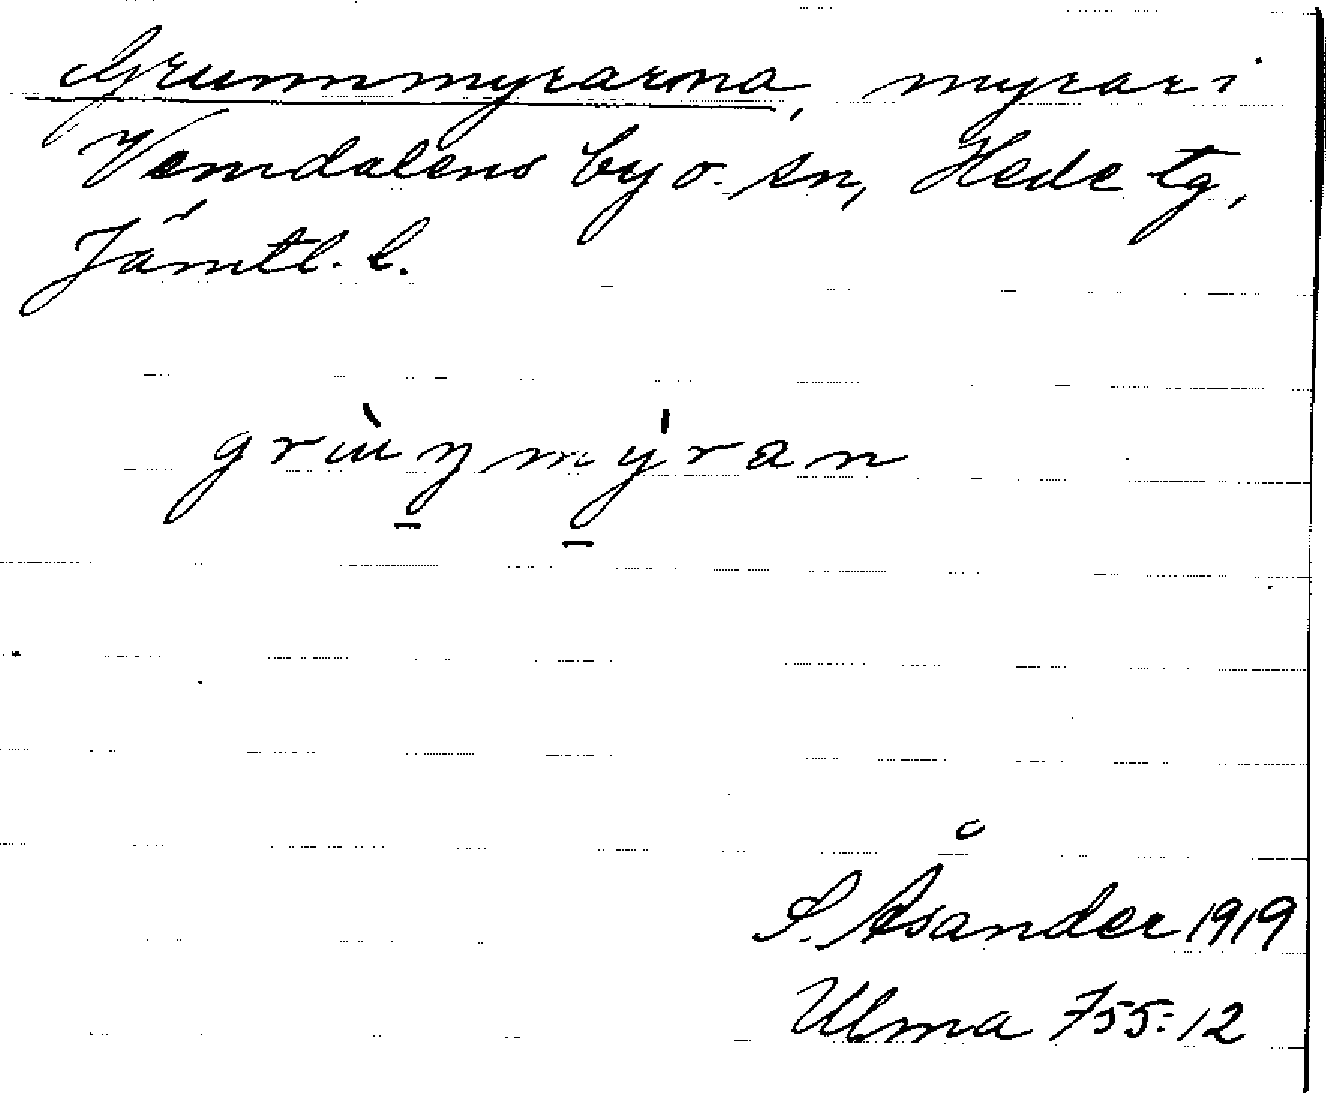 Grunnmyrarna, myrar i
Vemdalens by o. sn, Hede tg,
Jämtl. l.
grùn̠m̠ýran
S. Åsander 1919
Ulma 755:12